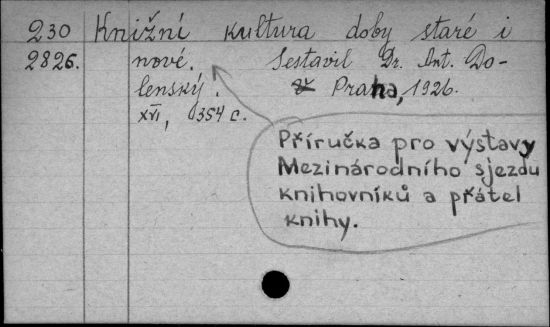 230 Knižní kultura doby staré i
2826. nové. Sestavil Dr. Ant. Do-
lenský. Praha, 1926.
XVI, 354 c.
Příručka pro výstavy
Mezinárodního sjezdu
knihovníků a přátel
knihy.